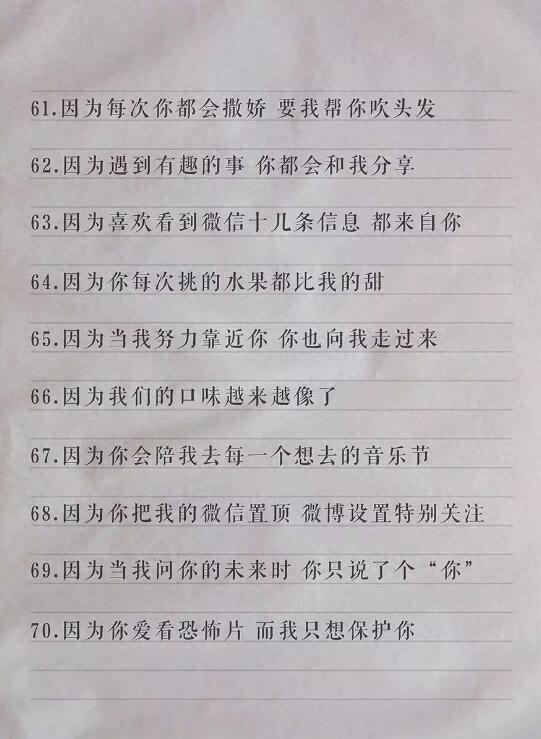 61.因为每次你都会撒娇 要我帮你吹头发
62.因为遇到有趣的事 你都会和我分享
63.因为喜欢看到微信十几条信息 都来自你
64.因为你每次挑的水果都比我的甜
65.因为当我努力靠近你 你也向我走过来
66.因为我们的口味越来越像了
67.因为你会陪我去每一个想去的音乐节
68.因为你把我的微信置顶 微博设置特别关注
69.因为当我问你的未来时 你只说了个“你”
70.因为你爱看恐怖片 而我只想保护你